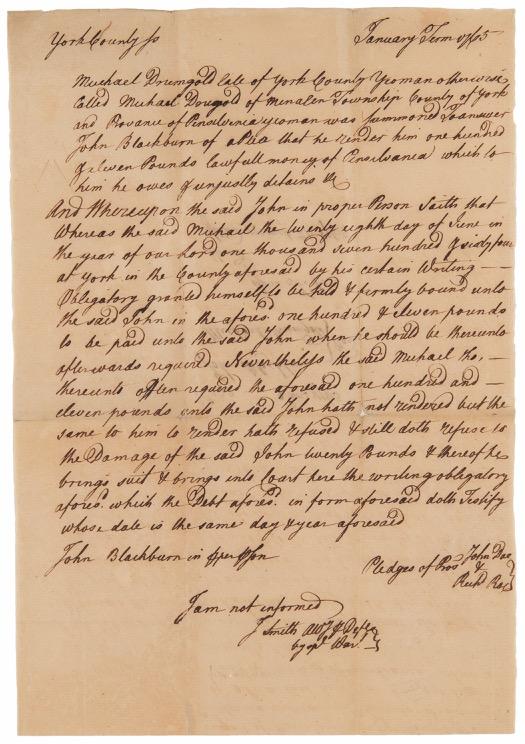 York County ss January Term 1765
Michael Drumgold late of York County Yeoman otherwise
Called Michael Drugold of Menalen Township County of York
and Provance of Pensilvinia yeoman was Summoned To answer
John Blackburn of a Plea that he render him one hundred
& eleven Pounds lawfull money of Pensilvania which to
him he owes & unjustly detains &c
And Whereupon the said John in proper Person Saith that
Whereas the said Michail the twenty eighth day of June in
the year of our Lord one thousand seven hundred & sixty four
at York in the County aforesaid by his certain Writing —
Obligatory granted himself to be held & firmly bound unto
the said John in the afores. one hundred & eleven pounds
to be paid unto the said John when he should be thereunto
afterwards required Neverthelyss the said Michael tho, —
thereunto often required the aforesaid one hundred and —
eleven pounds unto the said John hath not rendered but the
same to him to render hath refused & still doth refuse to
the Damage of the said John twenty Pounds & thereof he
brings suit & brings into Court here the writing obligatory
afores.d which the Debt afores.d in form aforesaid doth Testify
whose date is the same day & year aforesaid
John Blackburn in pper pson
Pledges of Pros John Doe
&
Rich.d Roe
I am not informed
J Smith Atty p Def.t
by spl War.